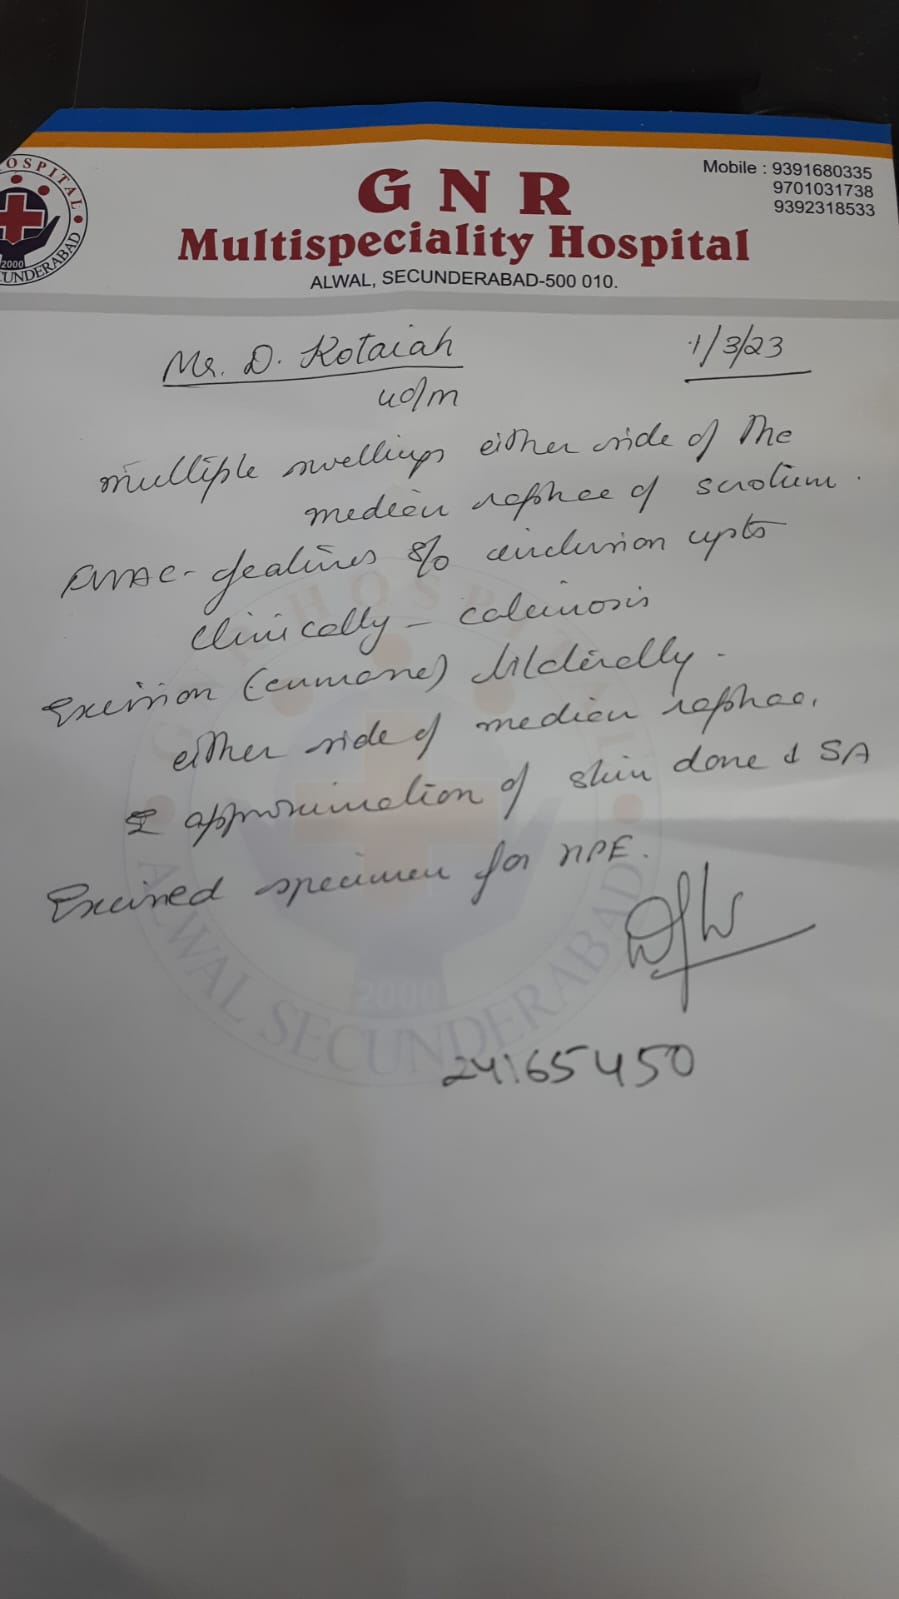 HOSPITAL
2000
SECUNDERABAD
G N R
Multispeciality Hospital
ALWAL, SECUNDERABAD-500 010.
Mobile : 9391680335
9701031738
9392318533
Mr. D. Kotaiah
1/3/23
40/m
multiple swellings either side of the
median raphae of scrotum.
FNAC - features s/o inclusion cysts
clinically - calcinosis
Excision (enmasse) bilaterally.
either side of median raphae.
& approximation of skin done SA
Excised specimen for HPE.
24165450
GNR HOSPITAL
2000
ALWAL SECUNDERABAD